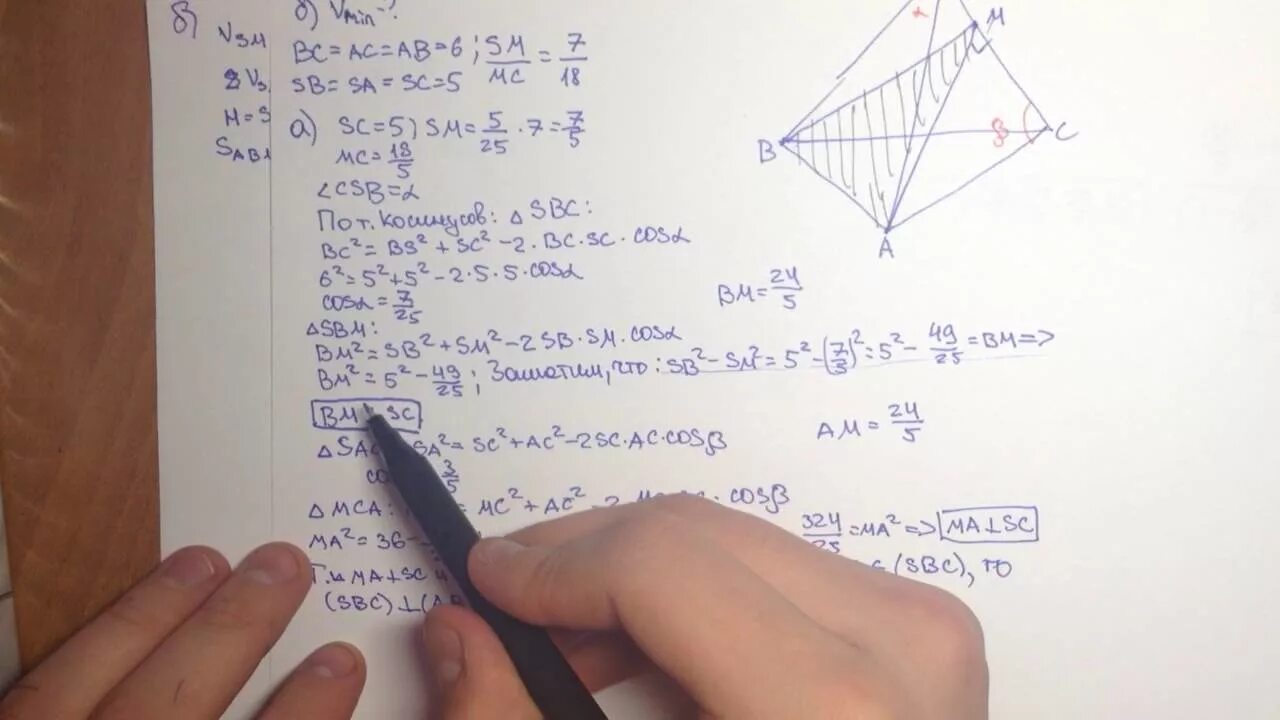 б)
V_SM
M=S
б) Vmin-?
BC=AC=AB=6 ; SM/MC = 7/18
SB=SA=SC=5
а) SC=5) SM=5/25·7=7/5
MC=18/5
∠CSB=α
По т. косинусов: △SBC:
BC²=BS²+SC²-2·BC·SC·cosα
6²=5²+5²-2·5·5·cosα
cosα=7/25
△SBM:
BM²=SB²+SM²-2SB·SM·cosα
BM²=5²-49/25; Заметим, что: SB²-SM²=5²-(7/5)²=5²-49/25=BM=>
BM SC
SA²=SC²+AC²-2SC·AC·cosβ
3/5
△MCA: = MC²+AC² cosβ
MA²=36- 324/25=MA²=>MA⊥SC
MA⊥SC (SBC), то
(SBC)⊥
BM=24/5
AM=24/5
α
M
B
β
C
A